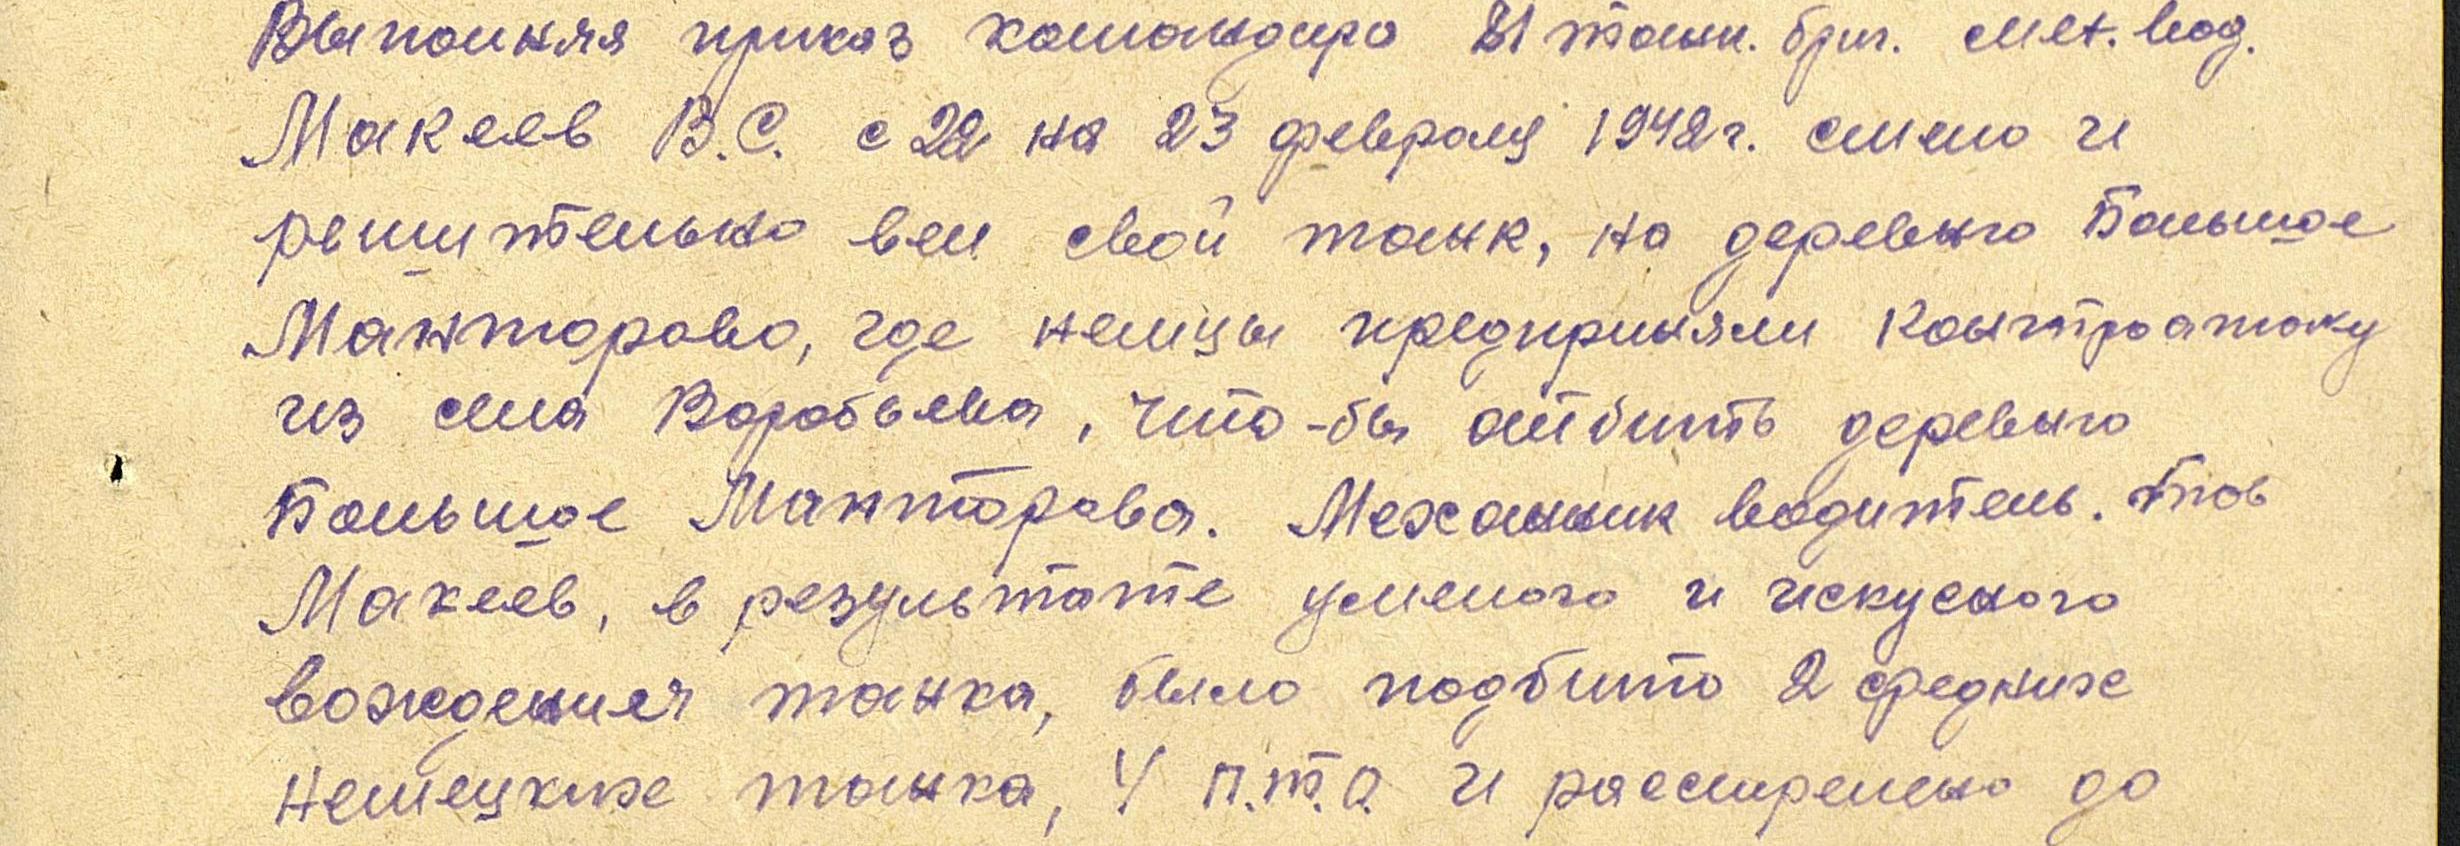 Выполняя приказ командира 21 танк. бриг. мех. вод.
Макеев В.С. с 22 на 23 февраля 1942г. смело и
решительно вел свой танк, на деревню Большое
Манторово, где немцы предприняли контратаку
из села Воробьева, что-бы отбить деревню
Большое Манторова. Механик водитель. тов
Макеев, в результате умелого и искусного
вождения танка, было подбито 2 средних
немецких танка, 4 п.т.о. и расстрелено до